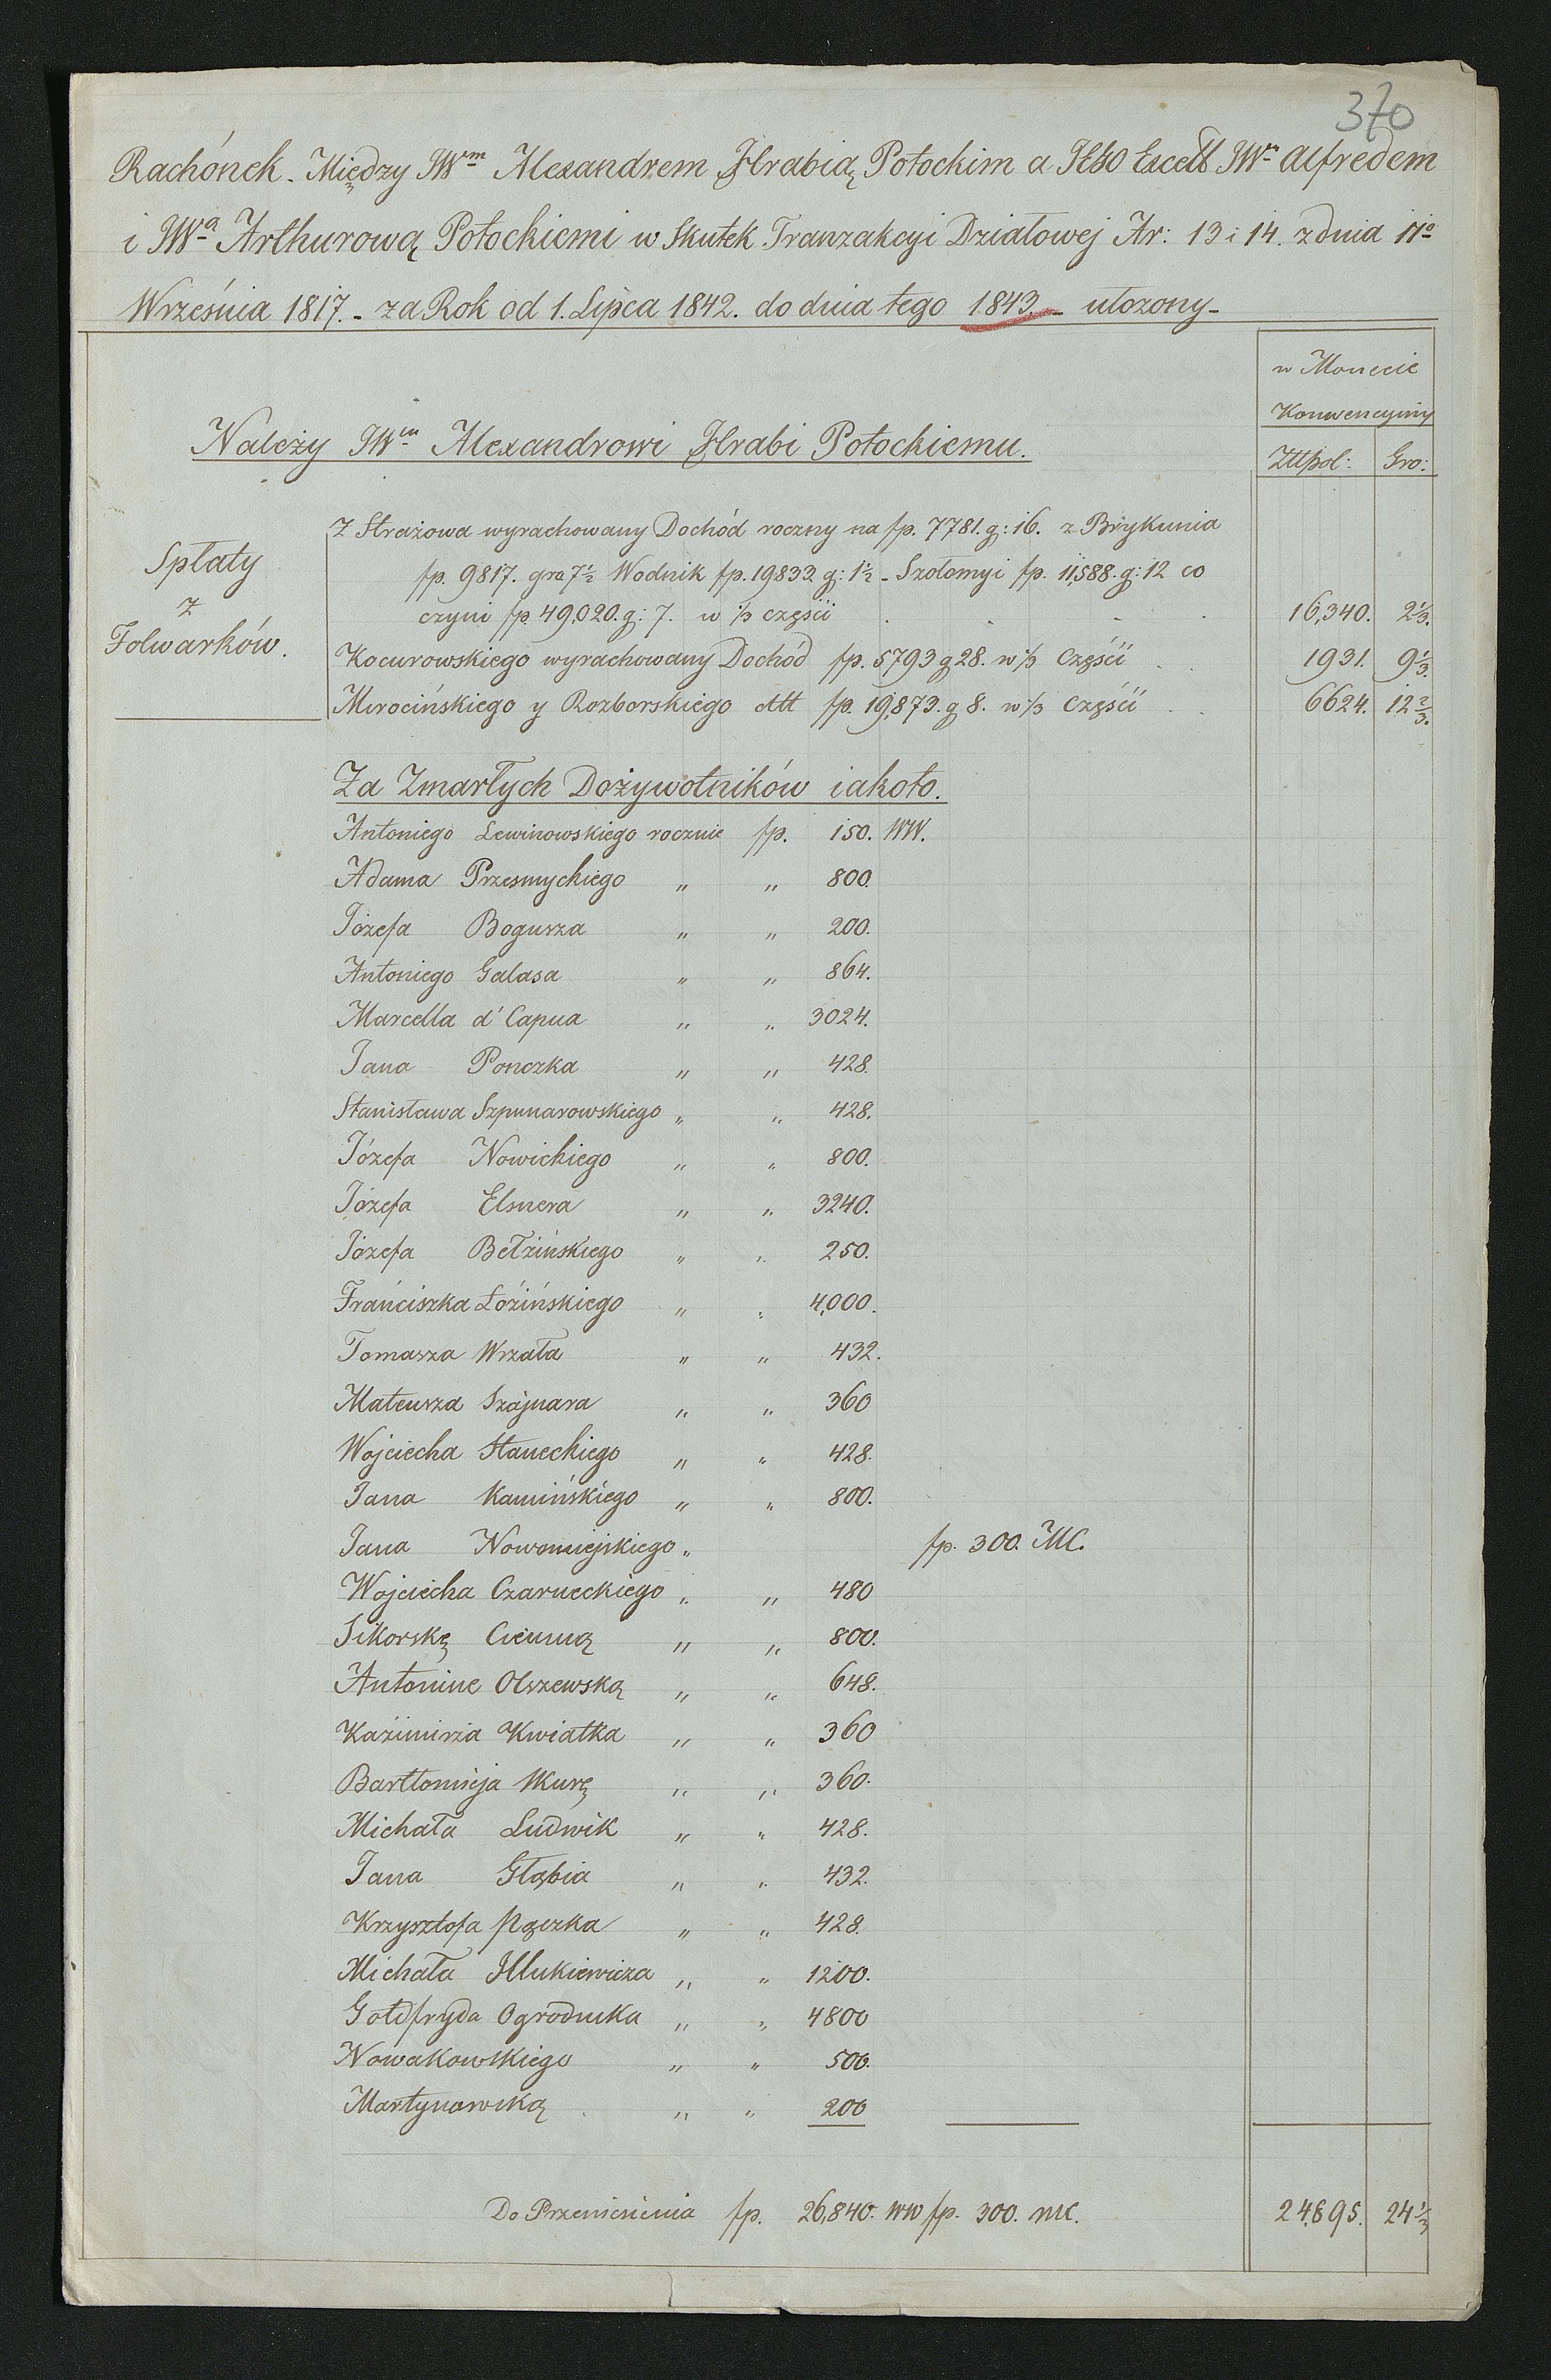 370
Rachónek. Między JWm Alexandrem Hrabią Potockim a JEgo Excell JWm Alfredem
i JWą Arthurową Potockiemi w Skutek Tranzakcyi Działowej Ar: 13 i 14. z dnia 11o
Września 1817. - za Rok od 1. Lipca 1842. do dnia tego 1843. - ułozony -
w Monecie
Konwencyiny
Należy JWm Alexandrowi Hrabi Potockiemu.
Złłpol: Gro:
Spłaty
z
Folwarków.
Z Strażowa wyrachowany Dochód roczny na fp. 7781. g: 16. z Brykunia
fp. 9817. gra 7½ Wodnik fp. 19833. g: 1½ - Szołomyi fp. 11,588. g: 12 co
czyni fp. 49,020. g: 7. w ⅓ częsći . . . . 16,340. 2⅓.
Kocurowskiego wyrachowany Dochód fp. 5793 g 28. w ⅓ Częsći . . 1931. 9⅓.
Mirocińskiego y Rozborskiego dtt fp. 19,873. g 8. w ⅓ Częsći . . 6624. 12⅔.
Za Zmarłych Dożywotników iakoto.
Antoniego Lewinowskiego rocznie fp. 150. WW.
Adama Przesmyckiego " " 800.
Józefa Bogusza " " 200.
Antoniego Galasa " " 864.
Marcella d'Capua " " 3024.
Jana Ponczka " " 428.
Stanisława Szpunarowskiego " " 428.
Józefa Nowickiego " " 800.
Józefa Elsnera " " 3240.
Józefa Bełzińskiego " " 250.
Franciszka Łózińskiego " " 4,000.
Tomasza Wrzała " " 432.
Mateusza Szájnara " " 360
Wojciecha Staneckiego " " 428.
Jana Kamińskiego " " 800.
Jana Nowomiejskiego " fp. 300. MC.
Wojciecha Czarneckiego " " 480
Sikorskę Ciemną " " 800.
Antonine Olszewską " " 648.
Kaźimirza Kwiatka " " 360
Bartłomieja Skurę " " 360.
Michała Ludwik " " 428.
Jana Głąbia " " 432.
Krzysztofa Pączka " " 428.
Michała Illukiewicza " " 1200.
Gotdfryda Ogrodnika " " 4800
Nowakowskiego " " 500.
Martynowską " " 200
Do Przeniesienia fp. 26,840. WW fp. 300. MC. 24,895. 24⅓